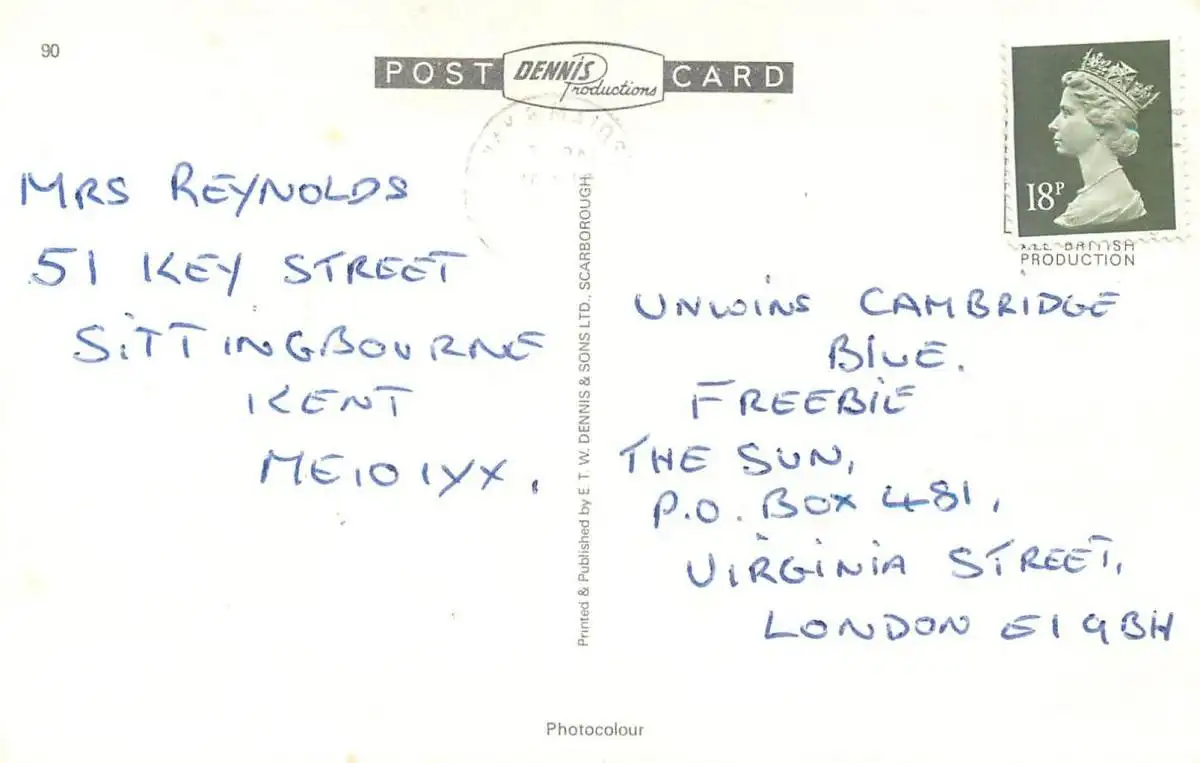 90
POST DENNIS Productions CARD
18P
ALL BRITISH
PRODUCTION
MRS REYNOLDS
51 KEY STREET
SITTINGBOURNE
KENT
ME10 1YX.
Printed & Published by E. T. W. DENNIS & SONS LTD., SCARBOROUGH
UNWINS CAMBRIDGE
BLUE.
FREEBIE
THE SUN,
P.O. BOX 481,
VIRGINIA STREET,
LONDON E1 9BH
Photocolour